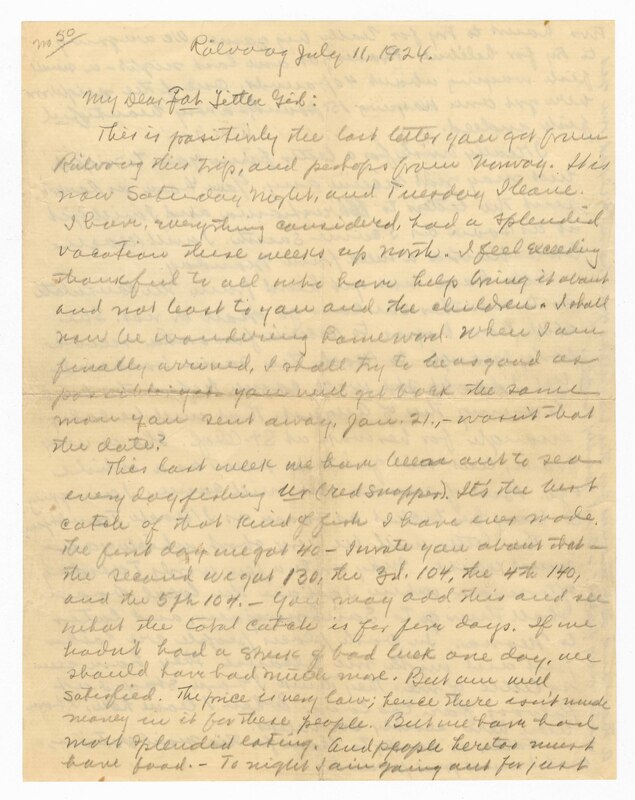 no 50
Rölvaag July 11, 1924.
My Dear Fat Letter Girl:
This is positively the last letter you get from
Rölvaag this trip, and perhaps from Norway. It is
now Saturday night, and Tuesday I leave.
I have, everything considered, had a splendid
vacation these weeks up north. I feel exceeding
thankful to all who have help bring it about
and not least to you and the children. I shall
now be wandering homeward. When I am
finally arrived, I shall try to be as good as
you will get back the same
man you sent away, Jan. 21, – wasn't that
the date?
This last week we have been out to sea
every day fishing Uer (red snapper). It's the best
catch of that kind of fish I have ever made.
The first day we got 40 – I wrote you about that –
the second we got 130, the 3rd. 104, the 4th 140,
and the 5th 104. – You may add this and see
what the total catch is for five days. If we
hadn't had a streak of bad luck one day, we
should have had much more. But am well
satisfied. The price is very low; hence there isn't much
money in it for these people. But we have had
most splendid eating. And people here too must
have food. – To night I am going out for just